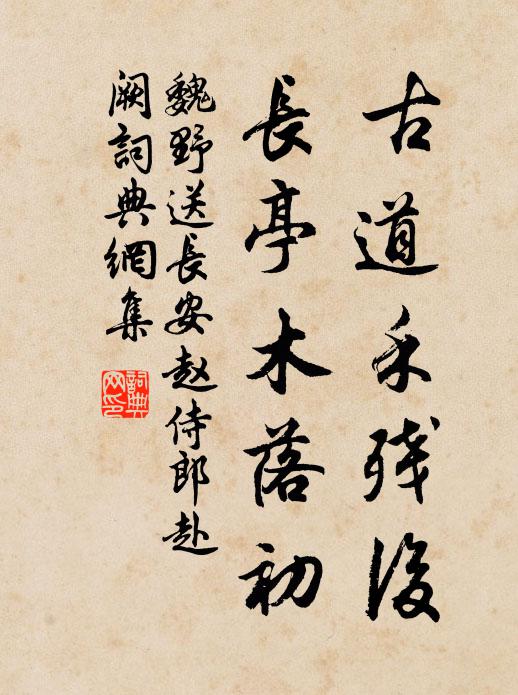 古道禾残後
長亭木落初
魏野送長安赵侍郎赴
阙詞典網集
詞典网印